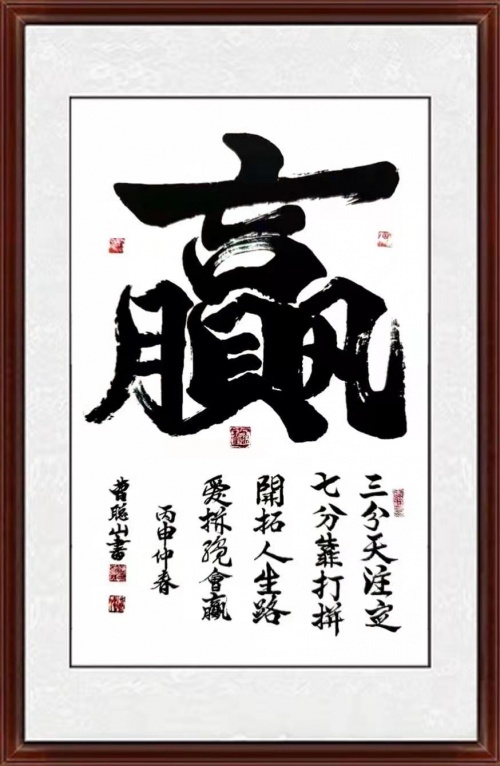 贏
三分天注定
七分靠打拼
開拓人生路
愛拼才會贏
丙申仲春
曹聡山書